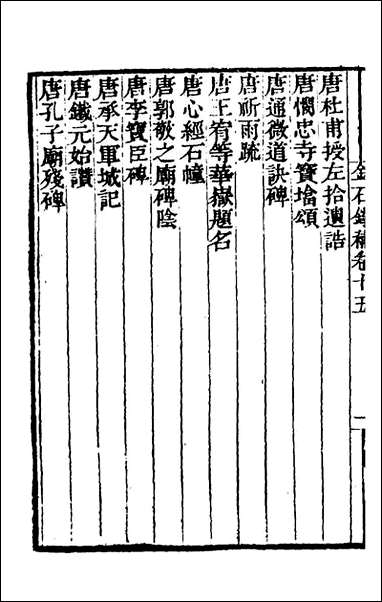 金石錄補卷十五
一
唐杜甫授左拾遺誥
唐憫忠寺寶塔頌
唐通微道訣碑
唐祈雨疏
唐王宥等華嶽題名
唐心經石幢
唐郭敬之廟碑陰
唐李寶臣碑
唐承天軍城記
唐鐵元始讚
唐孔子廟殘碑